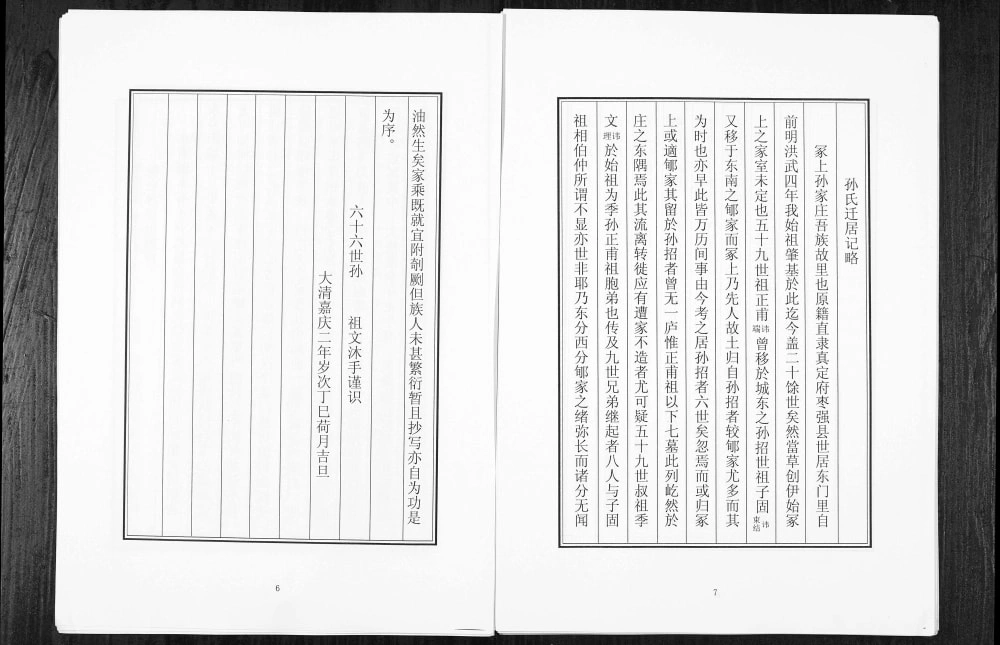 油然生矣家乘既就宜附剞劂但族人未甚繁衍暂且抄写亦自为功是
为序。
六十六世孙 祖文沐手谨识
大清嘉庆二年岁次丁巳荷月吉旦
6
孙氏迁居记略
冢上孙家庄吾族故里也原籍直隶真定府枣强县世居东门里自
前明洪武四年我始祖肇基於此迄今盖二十馀世矣然當草创伊始冢
上之家室未定也五十九世祖正甫讳端曾移於城东之孙招世祖子固讳東结
又移于东南之郇家而冢上乃先人故土归自孙招者较郇家尤多而其
为时也亦早此皆万历间事由今考之居孙招者六世矣忽焉而或归冢
上或適郇家其留於孙招者曾无一庐惟正甫祖以下七墓此列屹然於
庄之东隅焉此其流离转徙应有遭家不造者尤可疑五十九世叔祖季
文讳理於始祖为季孙正甫祖胞弟也传及九世兄弟继起者八人与子固
祖相伯仲所谓不显亦世非耶乃东分西分郇家之绪弥长而诸分无闻
7